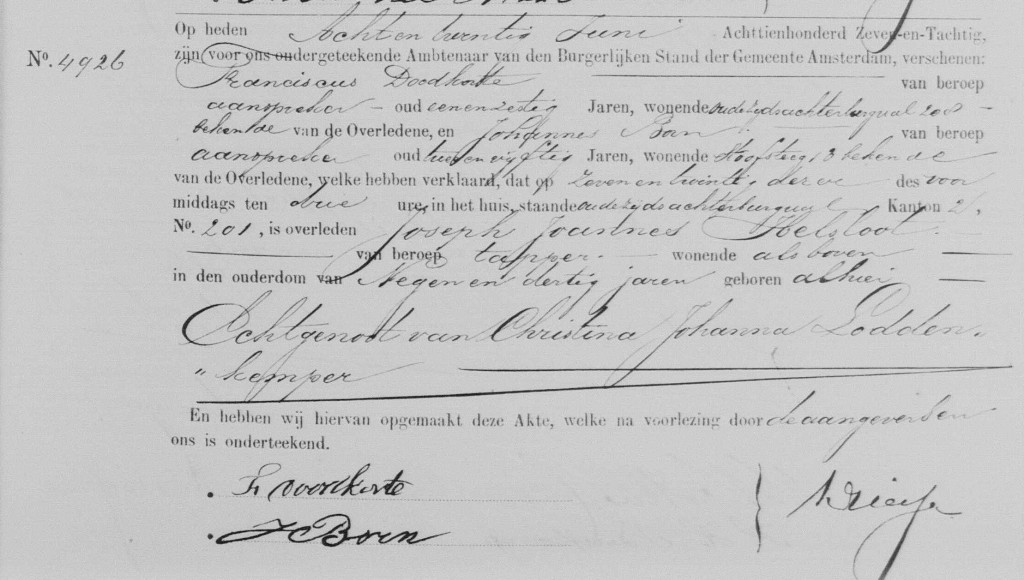 Op heden Acht en twintig Juni Achttienhonderd Zeven-en-Tachtig,
No. 4926 zijn voor ons ondergeteekende Ambtenaar van den Burgerlijken Stand der Gemeente Amsterdam, verschenen:
Franciscus Doodkorte van beroep
aanspreker oud eenenzestig Jaren, wonende oudezijdsachterburgwal 208
bekende van de Overledene, en Johannes Born van beroep
aanspreker oud twee en vijftig Jaren, wonende Hoofsteeg 3 bekende
van de Overledene, welke hebben verklaard, dat op zeven en twintig dezer des voor
middags ten drie ure, in het huis, staande oudezijdsachterburgwal Kanton 2,
No. 201, is overleden Joseph Joannes Helsloot
van beroep tapper wonende als boven
in den ouderdom van Negen en dertig jaren geboren alhier
Echtgenoot van Christina Johanna Lodden„
„kemper
En hebben wij hiervan opgemaakt deze Akte, welke na voorlezing door de aangevers en
ons is onderteekend.
Fr doodkorte
J C Born